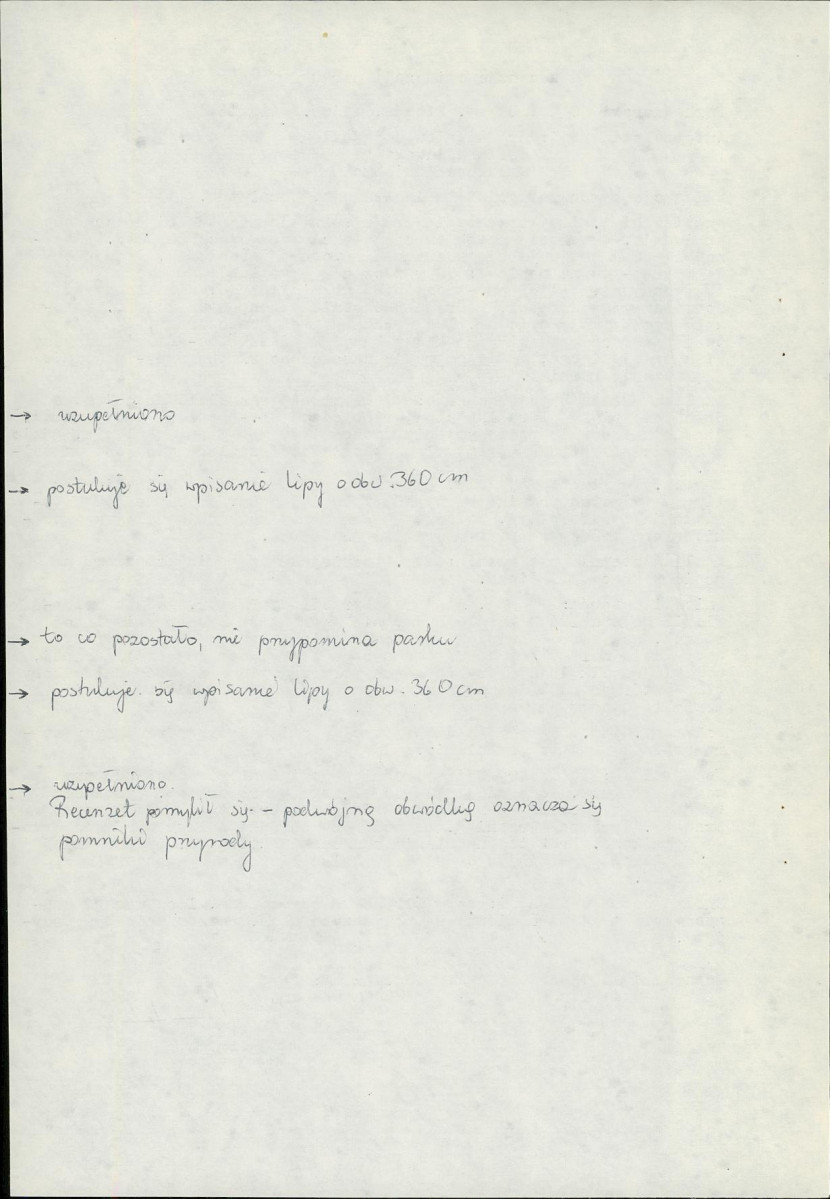 → uzupełniono
→ postuluje się wpisanie lipy o obw. 360 cm
→ to co pozostało, nie przypomina parku
→ postuluje się wpisanie lipy o obw. 360 cm
→ uzupełniono.
Recenzet pomylił się – podwójną obwódką oznacza się
pomniki przyrody.